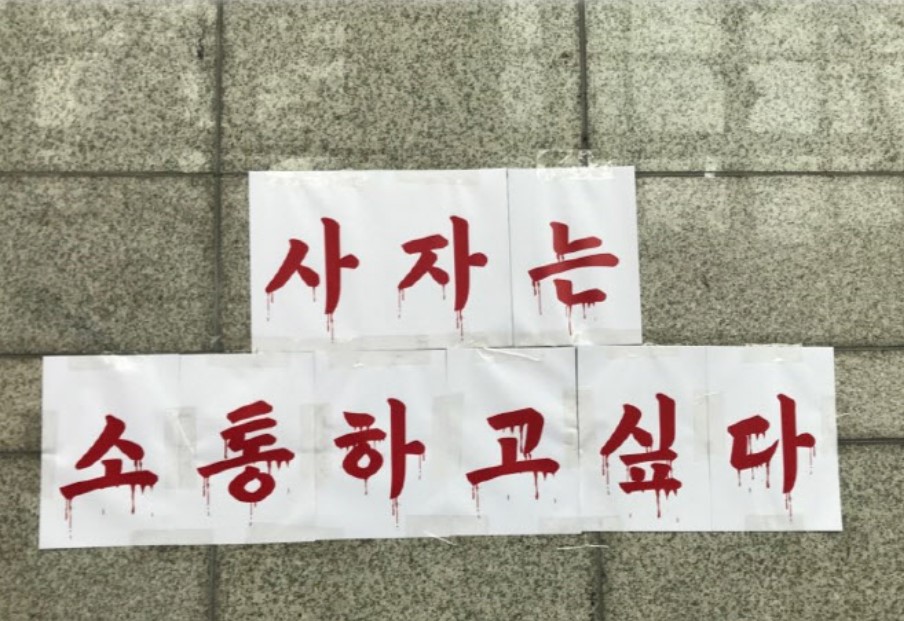 사자는
소통하고싶다